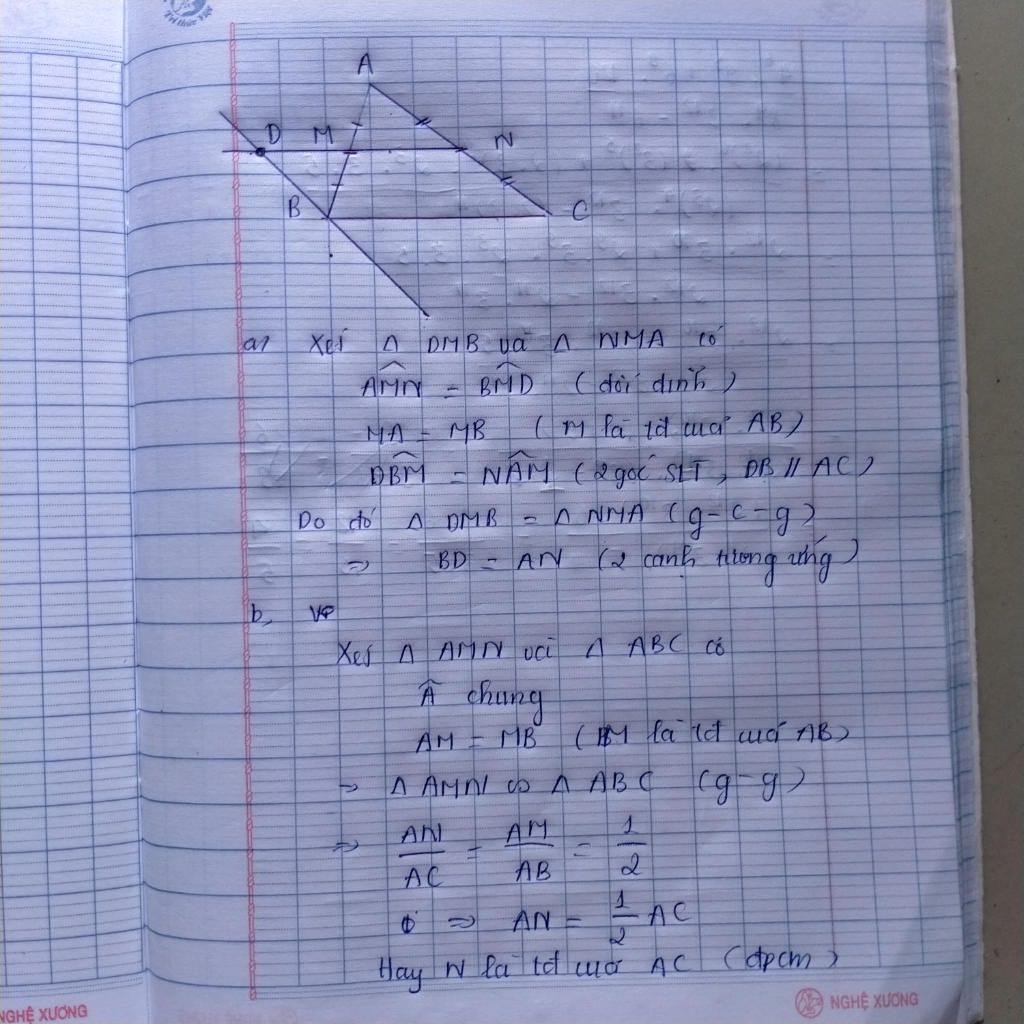 Trí thức Việt
A
D M N
B C
a, Xét Δ DMB và Δ NMA có
AM̂N = BM̂D (đối đỉnh)
MA = MB (M là tđ của AB)
DB̂M = NÂM (2 góc SLT, DB // AC)
Do đó Δ DMB = Δ NMA (g-c-g)
=> BD = AN (2 cạnh tương ứng)
b,
Xét Δ AMN và Δ ABC có
Â chung
AM = MB (M là tđ của AB)
=> Δ AMN ∽ Δ ABC (g-g)
=> AN/AC = AM/AB = 1/2
=> AN = 1/2 AC
Hay N là tđ của AC (đpcm)
NGHỆ XƯƠNG
NGHỆ XƯƠNG